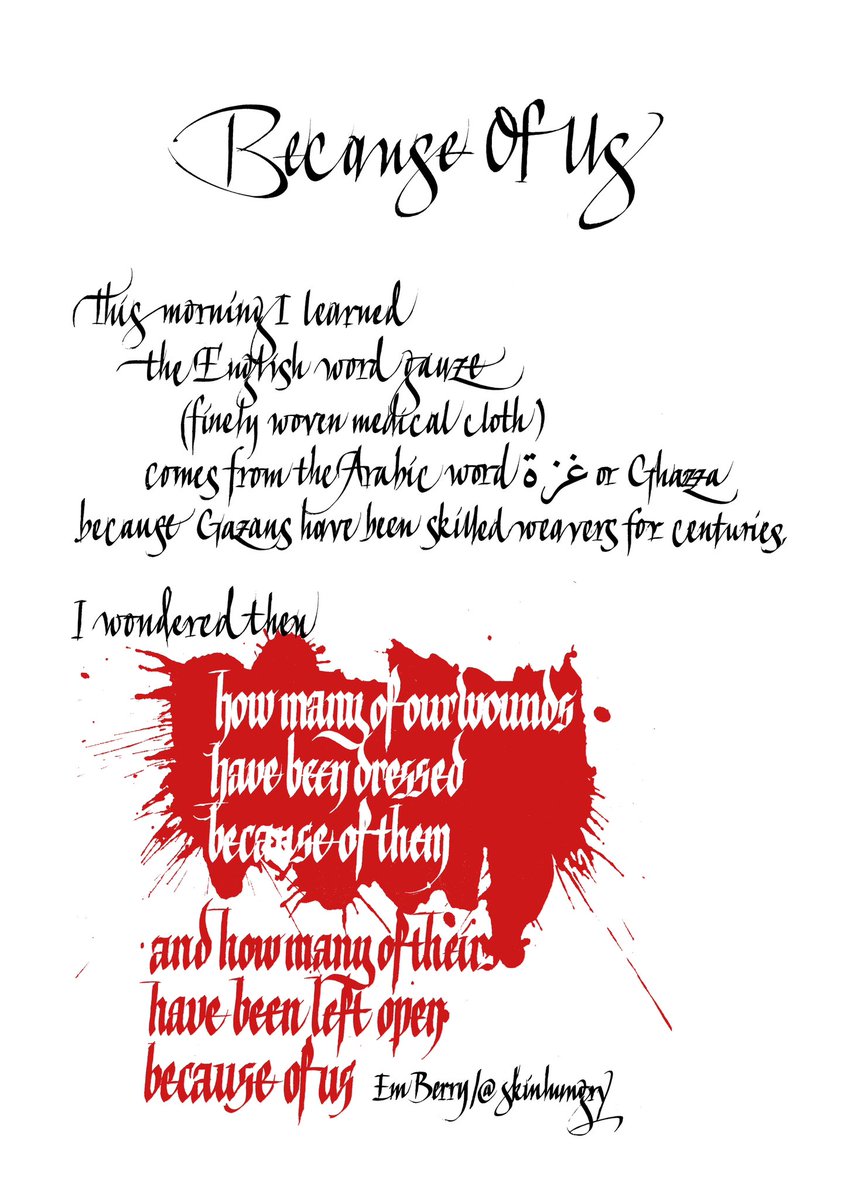 Because Of Us
This morning I learned
the English word gauze
(finely woven medical cloth)
comes from the Arabic word غزة or Ghazza
because Gazans have been skilled weavers for centuries.
I wondered then
how many of our wounds
have been dressed
because of them
and how many of theirs
have been left open
because of us
Em Berry/@skinhungry